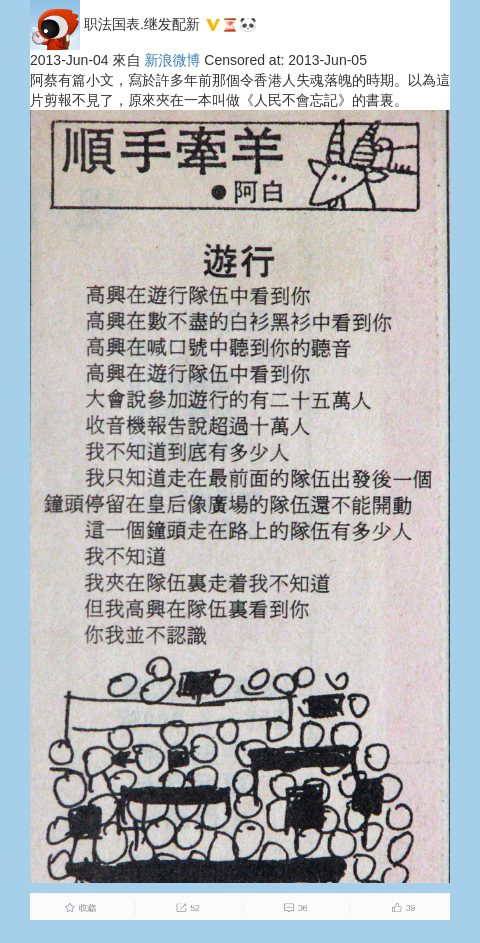 职法国表.继发配新
2013-Jun-04 來自 新浪微博 Censored at: 2013-Jun-05
阿蔡有篇小文，寫於許多年前那個令香港人失魂落魄的時期。以為這
片剪報不見了，原來夾在一本叫做《人民不會忘記》的書裏。
順手牽羊
●阿白
遊行
高興在遊行隊伍中看到你
高興在數不盡的白衫黑衫中看到你
高興在喊口號中聽到你的聽音
高興在遊行隊伍中看到你
大會說參加遊行的有二十五萬人
收音機報告說超過十萬人
我不知道到底有多少人
我只知道走在最前面的隊伍出發後一個
鐘頭停留在皇后像廣場的隊伍還不能開動
這一個鐘頭走在路上的隊伍有多少人
我不知道
我夾在隊伍裏走着我不知道
但我高興在隊伍裏看到你
你我並不認識
收藏 52 36 39